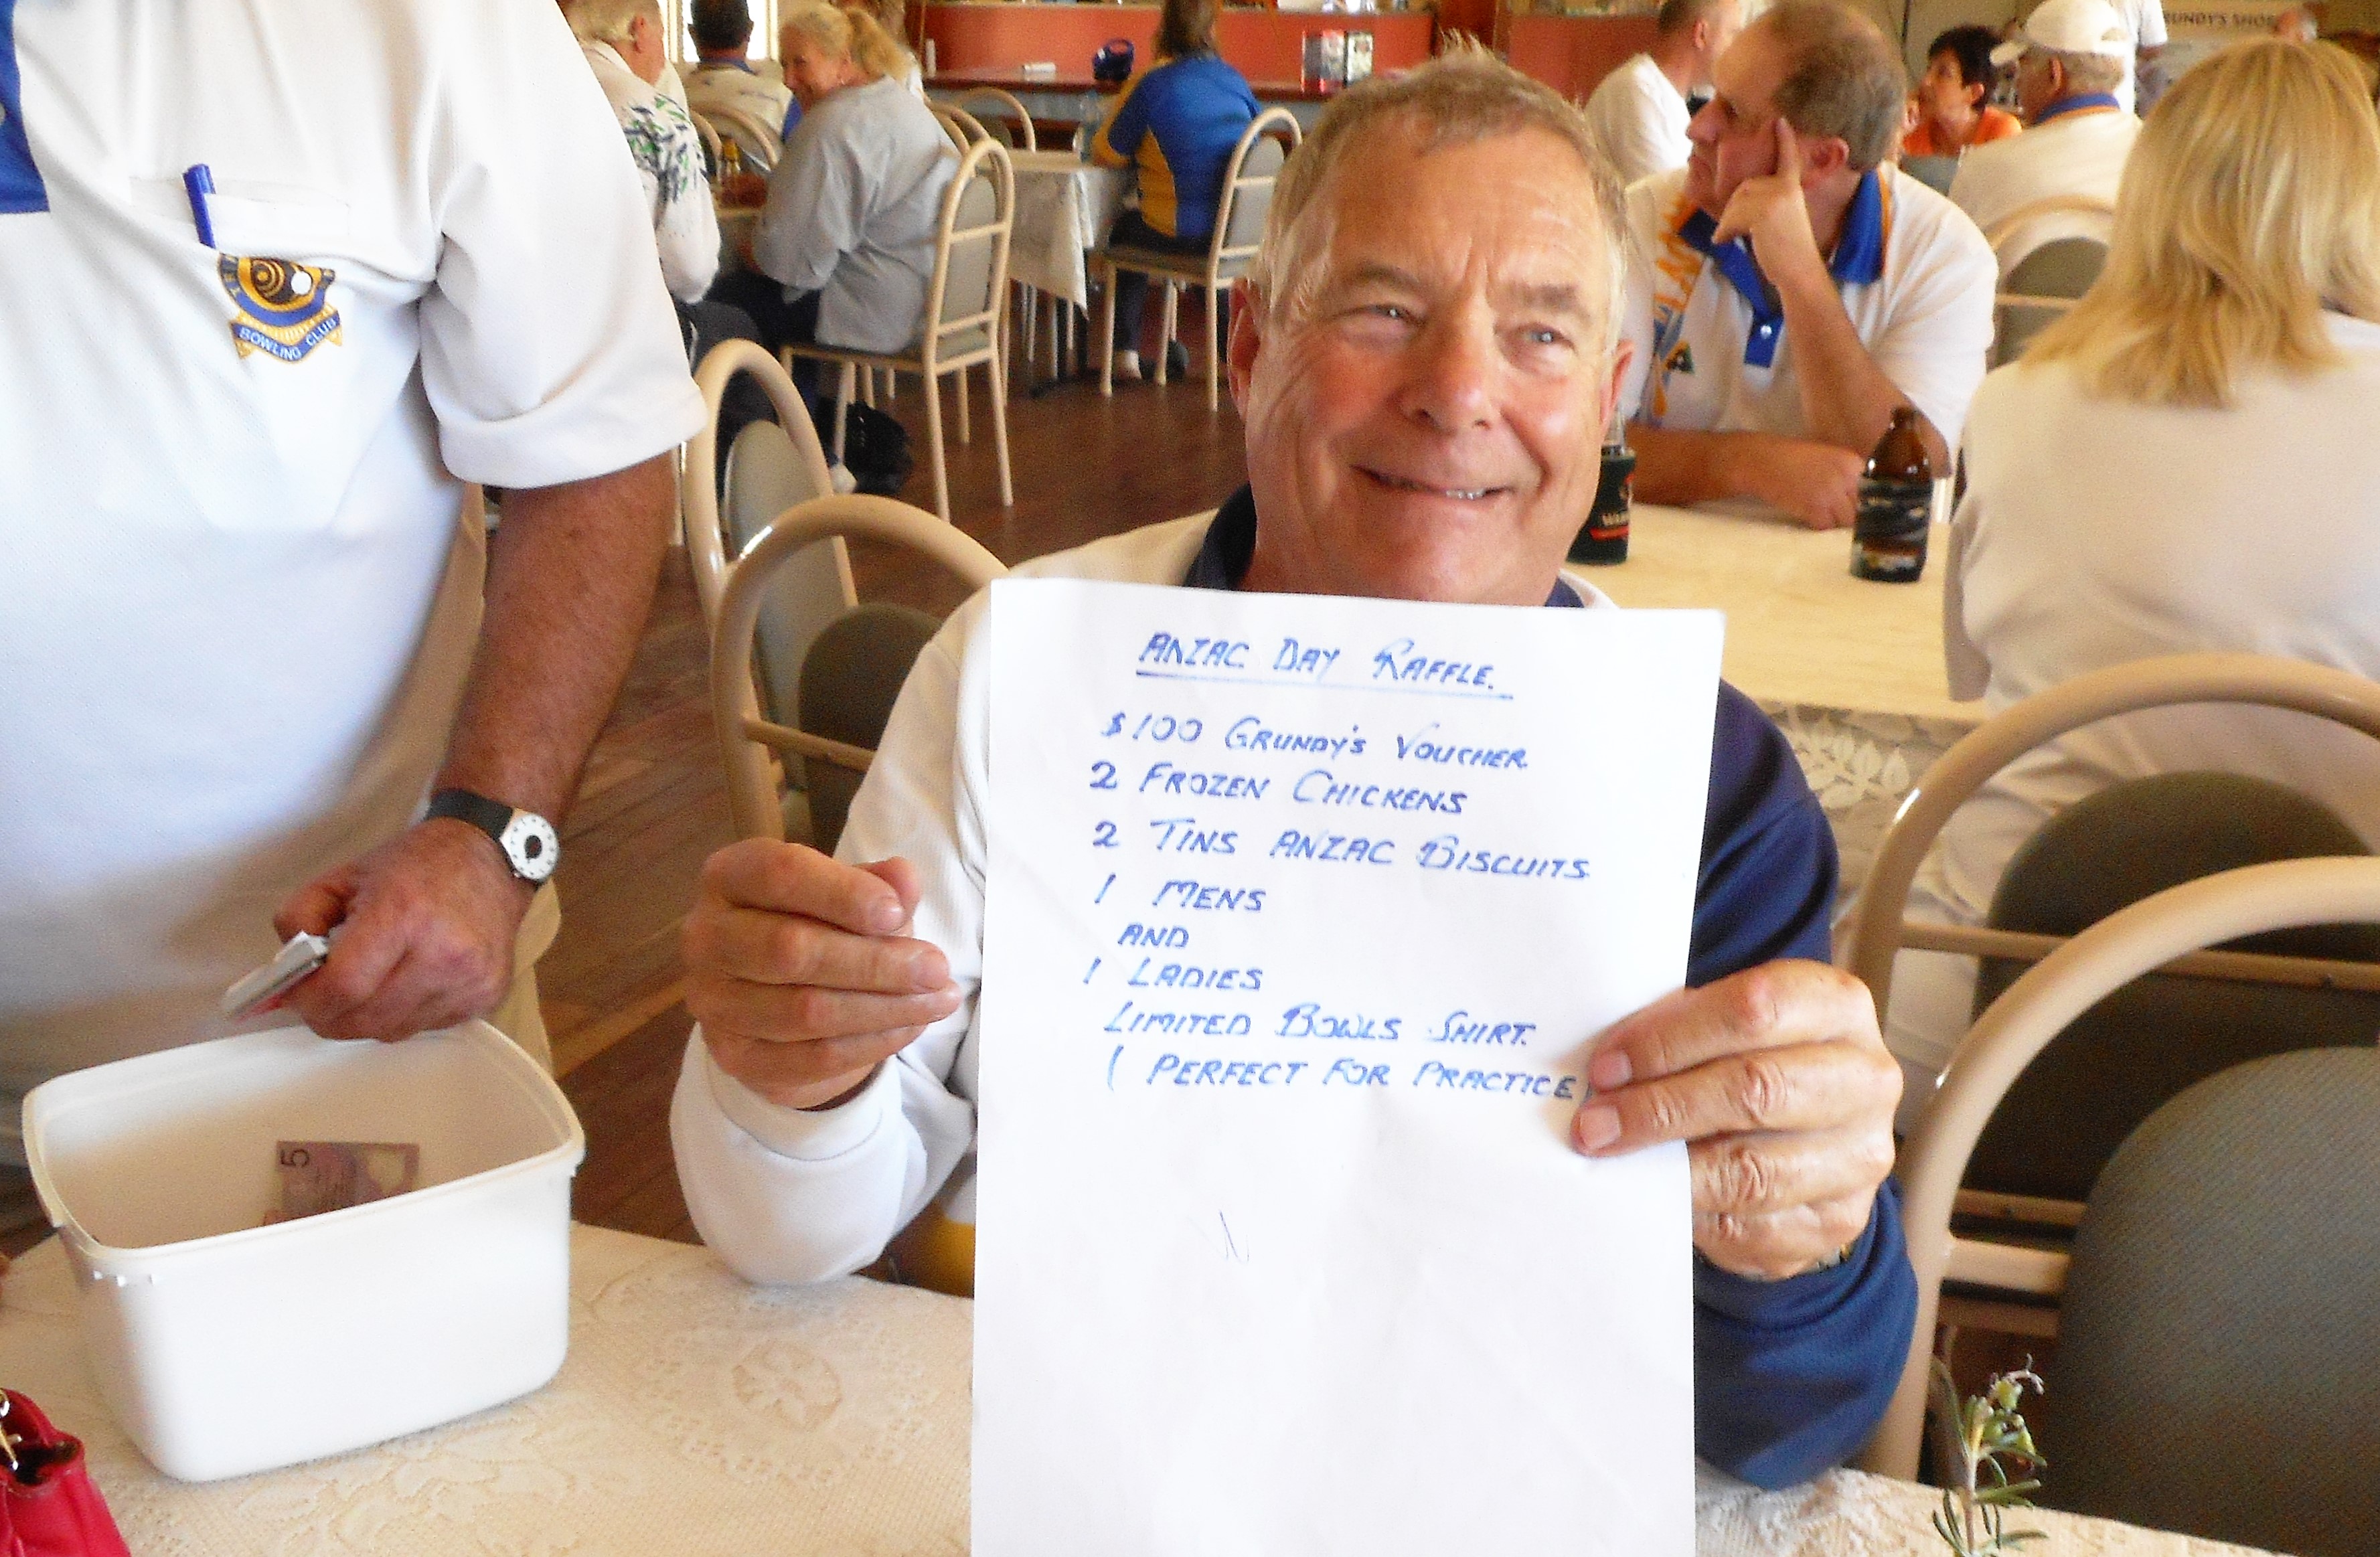 ANZAC DAY RAFFLE.
$100 GRUNDY'S VOUCHER
2 FROZEN CHICKENS
2 TINS ANZAC BISCUITS
1 MENS
AND
1 LADIES
LIMITED BOWLS SHIRT.
( PERFECT FOR PRACTICE )
BOWLING CLUB
5